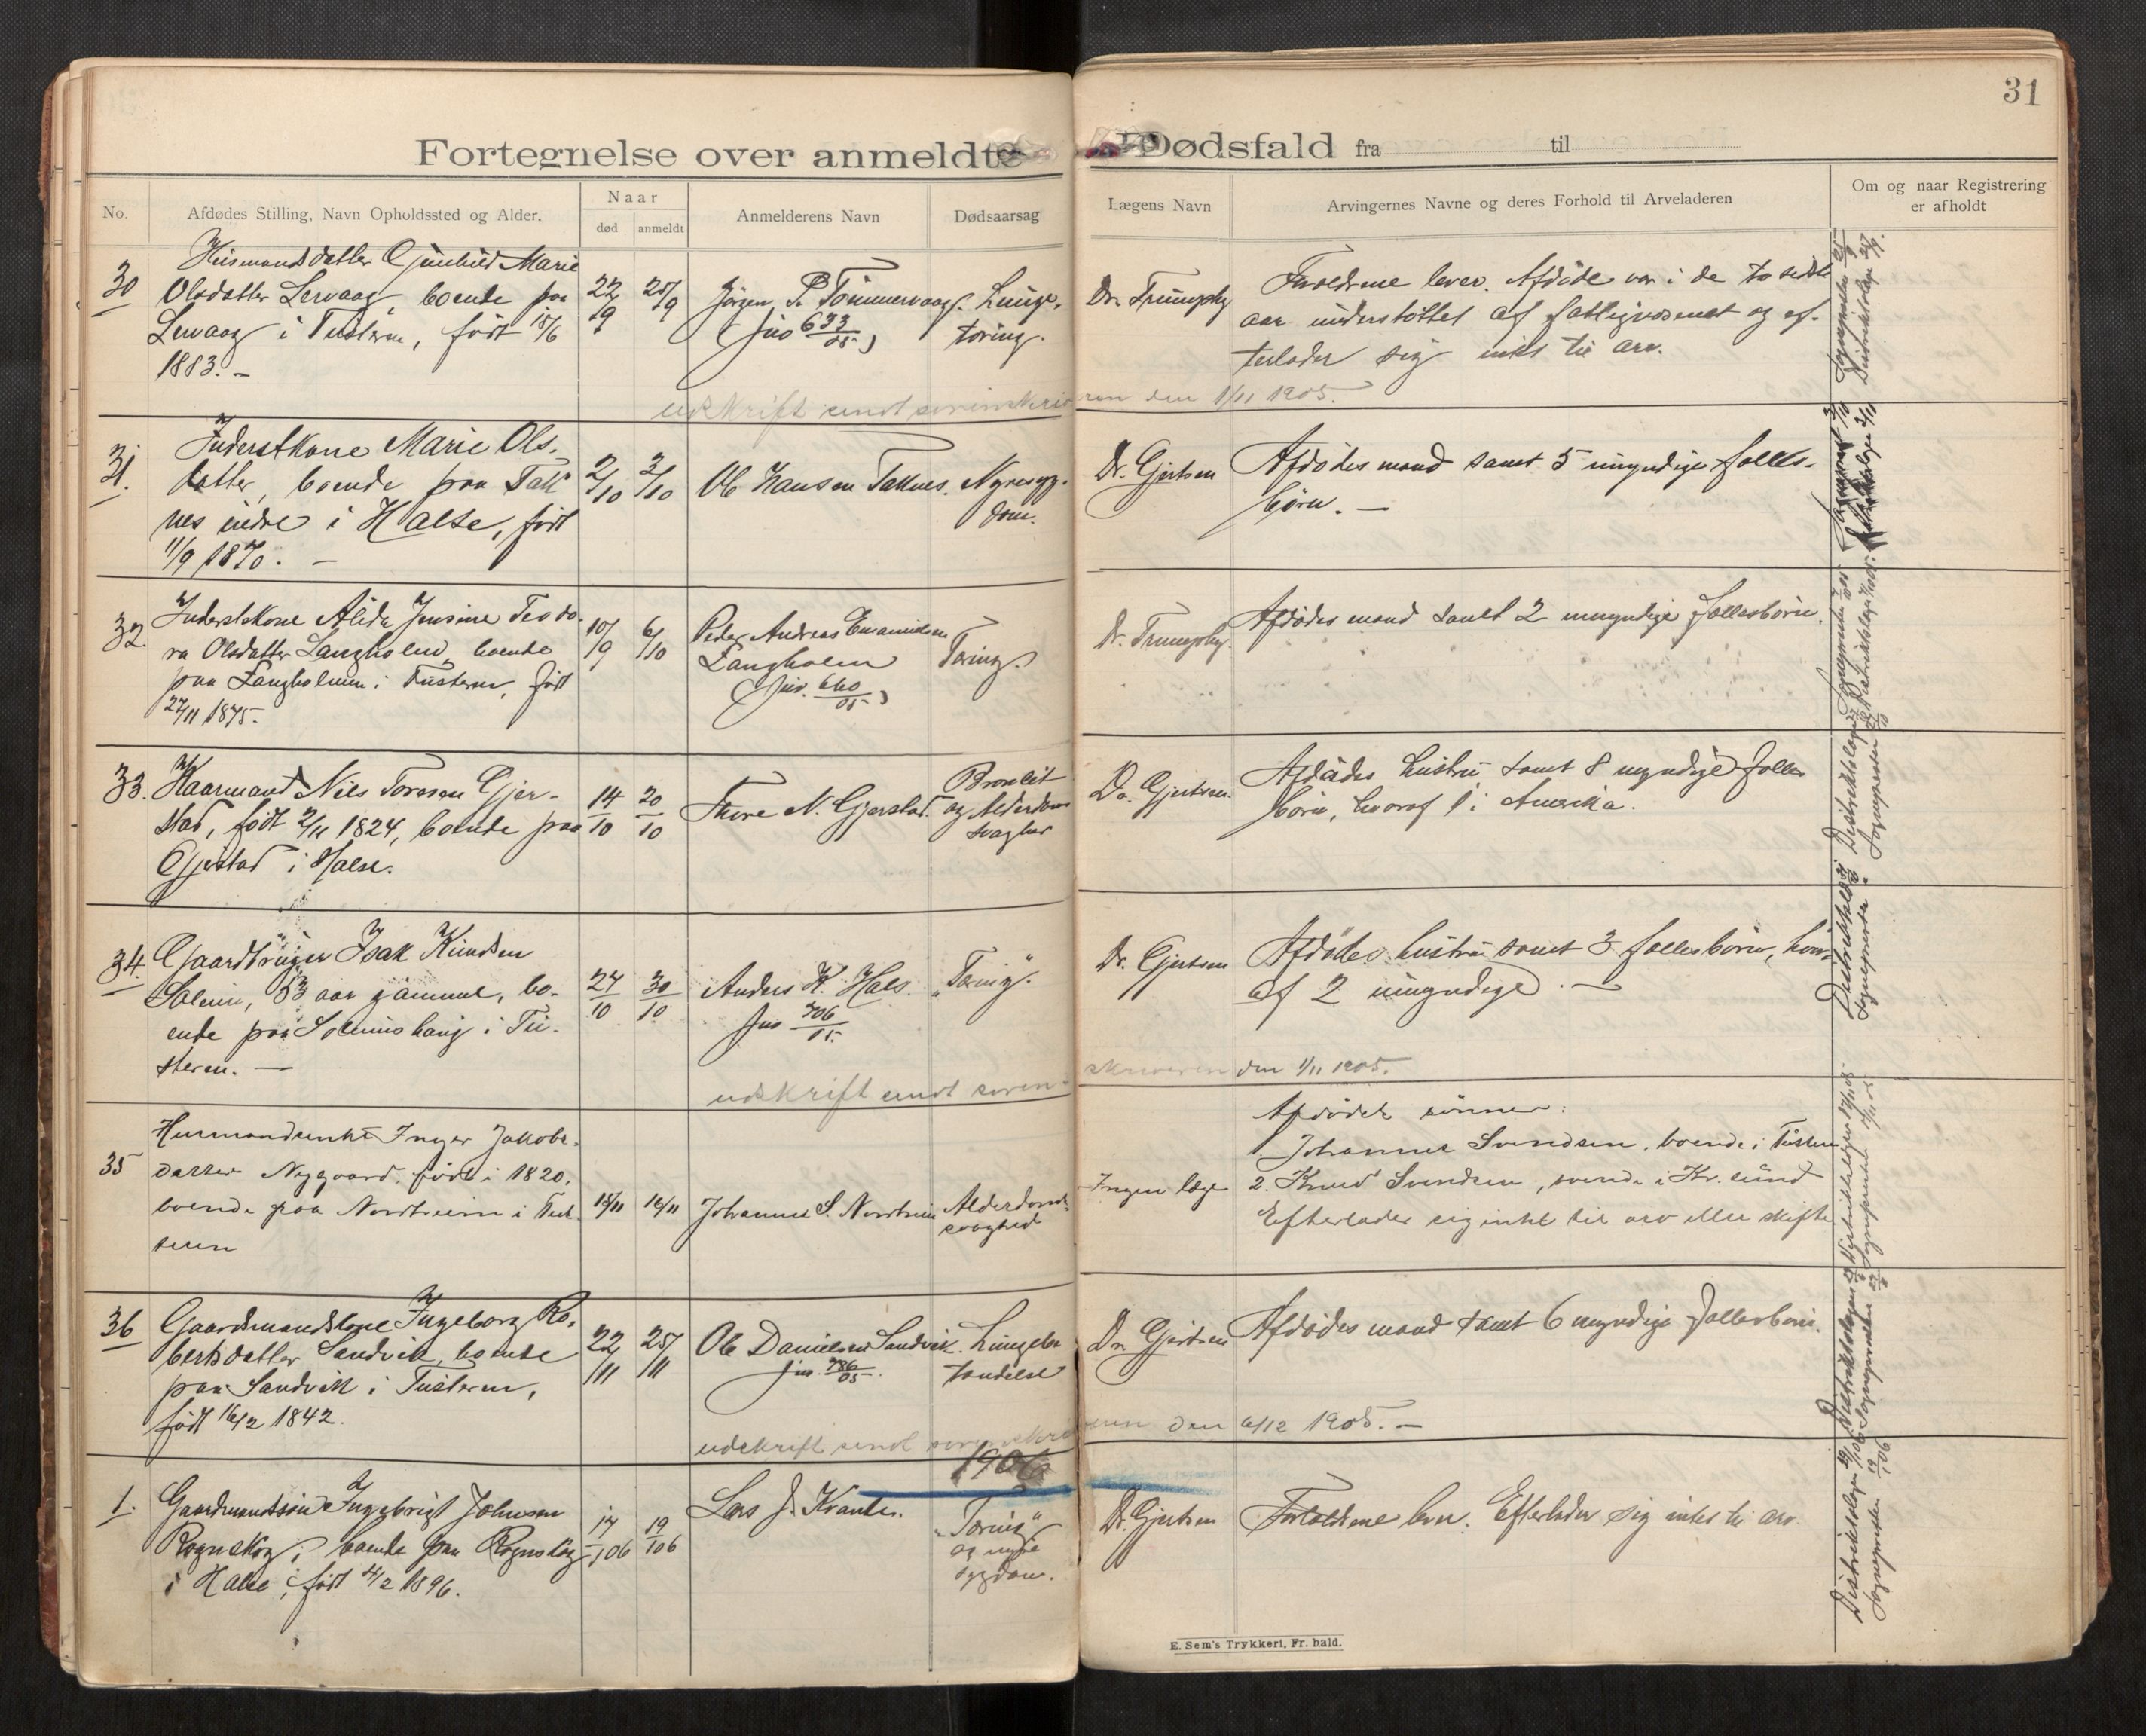 31
Fortegnelse over anmeldte Dødsfald fra til
No.
Afdødes Stilling, Navn Opholdssted og Alder.
Naar
død
anmeldt
Anmelderens Navn
Dødsaarsag
Lægens Navn
Arvingernes Navne og deres Forhold til Arveladeren
Om og naar Registrering
er afholdt
30
Husmandsdatter Gunhild Marie
Olsdatter Lervaag, boende paa
Lervaag i Tusteren, født 15/6
1883. –
22/9
25/9
Jørgen P. Tømmervaag.
(Jno 633/05)
Lunge-
tæring.
Dr. Trumphy
Forældrene lever. Afdøde var i de to sidste
aar understøttet af fattigvæsenet og ef-
terlader sig intet til arv.
udskrift sendt sorenskriveren den 1/11 1905.
31.
Inderstkone Marie Ols-
datter, boende paa Tak
nes indre i Halse, født
11/9 1870. –
2/10
3/10
Ole Hansen Taknes.
Nyresyg-
dom.
Dr. Gjertsen
Afdødes mand samt 5 umyndige fælles-
børn. –
32.
Inderstkone Alida Jensine Teodo-
ra Olsdatter Langholm, boende
paa Langholmen i Tusteren, født
27/11 1875.
10/9
6/10
Peder Andreas Emanuelsen
Langholm
(Jno. 660/05)
Tæring.
Dr. Trumphy.
Afdødes mand samt 2 umyndige fællesbørn.
33.
Kaarmand Nils Toresen Gjer-
stad, født 2/11 1824, boende paa
Gjerstad i Halse.
14/10
20/10
Thore N. Gjerstad.
Bronkit
og Alderdoms
svaghed
Dr. Gjertsen.
Afdødes hustru samt 8 myndige fælles
børn, hvoraf 1 i Amerika.
34.
Gaardbruger Isak Knudsen
Solem, 53 aar gammel, bo-
ende paa Solemshaug i Tu-
steren. –
24/10
30/10
Anders K. Hals.
Jno 706/05.
"Tæring".
Dr. Gjertsen
Afdødes hustru samt 3 fællesbørn, hvor-
af 2 umyndige. –
udskrift sendt soren-
skriveren den 1/11 1905.
35
Husmandsenke Inger Jakobs-
datter Nygaard, født i 1820,
boende paa Nordheim i Tus-
teren
15/11
16/11
Johannes S. Nordheim
Alderdoms-
svaghed
Ingen læge
Afdødes sønner:
1. Johannes Svendsen, boende i Tusteren
2. Knud Svendsen, boende i Kr.sund
Efterlader sig intet til arv eller skifte
36
Gaardmandskone Ingeborg Ro-
bertsdatter Sandvik, boende
paa Sandvik i Tusteren,
født 16/2 1842.
22/11
25/11
Ole Danielsen Sandvik.
Jno. 786/05.
Lungebe
tændelse
Dr. Gjertsen
Afdødes mand samt 6 myndige fællesbørn.
udskrift sendt sorenskriveren den 6/12 1905. –
1906
1.
Gaardmandssøn Ingebrigt Johnsen
Rognskog, boende paa Rognskog
i Halse, født 4/2 1896.
17/1 06
19/1 06
Lars J. Kvande.
"Tæring"
og nyre
sygdom.
Dr. Gjertsen
Forældrene lever. Efterlader sig intet til arv.
E. Sem's Trykkeri, Fr. hald.